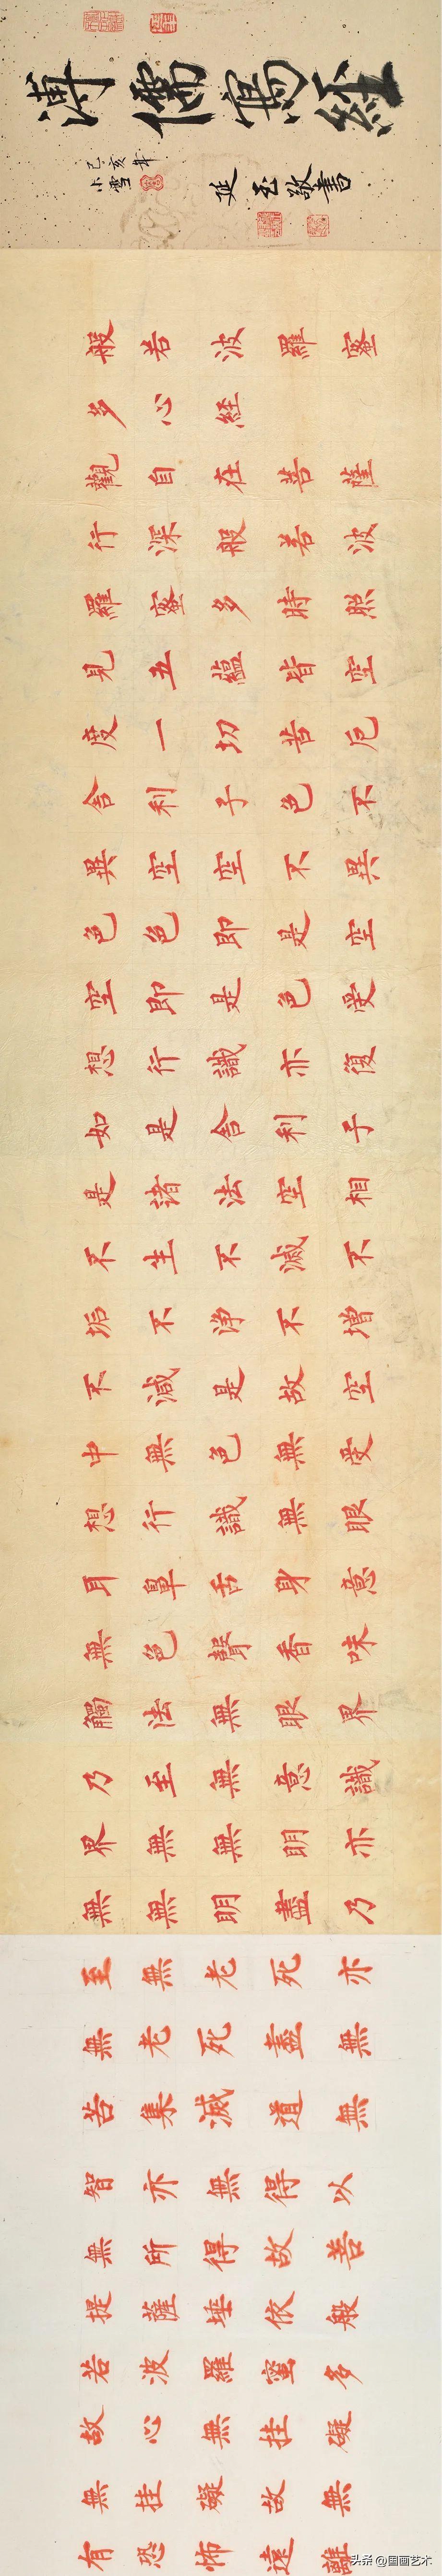 溥儒寫經
己亥年
小雪
延玉敬書
般若波羅蜜
多心經
觀自在菩薩
行深般若波
羅蜜多時照
見五蘊皆空
度一切苦厄
舍利子色不
異空空不異
色色即是空
空即是色受
想行識亦復
如是舍利子
是諸法空相
不生不滅不
垢不淨不增
不減是故空
中無色無受
想行識無眼
耳鼻舌身意
無色聲香味
觸法無眼界
乃至無意識
界無無明亦
無無明盡乃
至無老死亦
無老死盡無
苦集滅道無
智亦無得以
無所得故菩
提薩埵依般
若波羅蜜多
故心無挂礙
無挂礙故無
有恐怖遠離
头条 @国画艺术